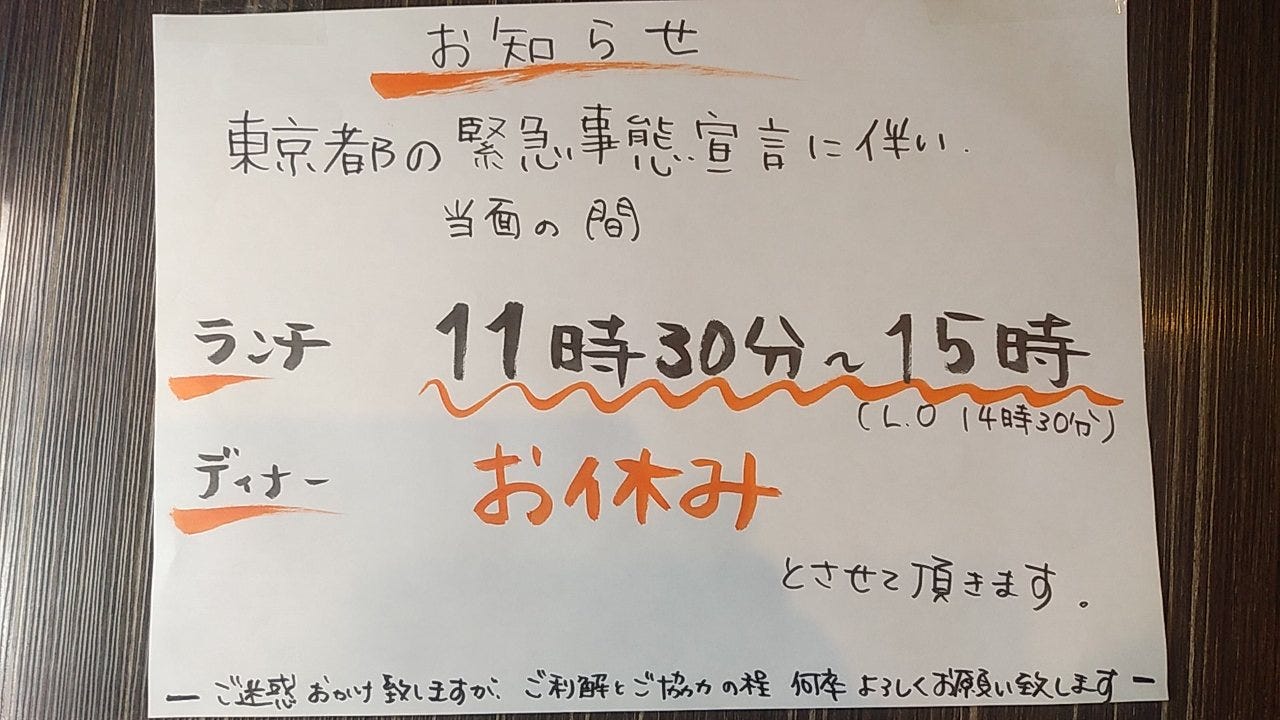 お知らせ
東京都の緊急事態宣言に伴い.
当面の間
ランチ 11時30分~15時
(L.O 14時30分)
ディナー お休み
とさせて頂きます。
ー ご迷惑おかけ致しますが、ご利解とご協力の程 何卒よろしくお願い致します ー